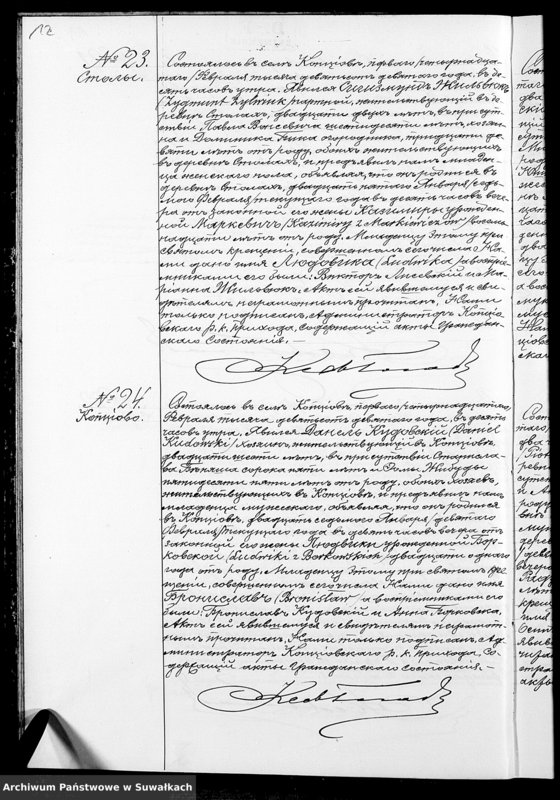 12
№ 23.
Столы.
Состоялось въ селѣ Копціовѣ, перваго /четырнадца-
таго/ Февраля тысяча девятьсотъ девятаго года, въ де-
сять часовъ утра. Явился Сигизмундъ Жильвонъ
/Zygmunt Żylwink/ партной, жительствующій въ де-
ревнѣ Столахъ, двадцати двухъ лѣтъ, въ присут-
ствіи Павла шестидесяти лѣтъ, хозяи-
на и Доминика огородника, тридцати де-
вяти лѣтъ отъ роду, обоихъ жительствующихъ
въ деревнѣ Столахъ, и предъявилъ намъ младен-
ца женскаго пола, объявляя, что онъ родился въ
деревнѣ Столахъ, двадцать пятаго Января /седь-
мого Февраля/ текущаго года въ десять часовъ вече-
ра отъ законной его жены Казимиры урожден-
ной Маркевичъ /Kazimiry z Markiewiczów/ восем-
надцати лѣтъ отъ роду. Младенцу этому при
святомъ крещеніи, совершенномъ сего числа На-
ми дано имя Людовика /Ludwika/ а воспріем-
никами его были: Викторъ Лисевскій и Ма-
ріанна Жильвонъ. Актъ сей явившемуся и сви-
дѣтелямъ неграмотнымъ прочитанъ, Нами
только подписанъ. Администраторъ Копціо-
вскаго р. к. прихода, содержащій акты Граждан-
скаго Состоянія. —
№ 24.
Копціово.
Состоялось въ селѣ Копціовѣ, перваго /четырнадцатаго/
Февраля тысяча девятьсотъ девятаго года, въ десять
часовъ утра. Явился Даніель Кудовскій /Daniel
Kudowski/ хозяинъ, жительствующій въ Копціовѣ,
двадцати шести лѣтъ, въ присутствіи Станисла-
ва сорока пяти лѣтъ и
пятидесяти пяти лѣтъ отъ роду, обоихъ хозяевъ,
жительствующихъ въ Копціовѣ, и предъявилъ намъ
младенца мужескаго, объявляя, что онъ родился
въ Копціовѣ, двадцать седьмого Января /девятаго
Февраля/ текущаго года въ десять часовъ вечера отъ
законной его жены Людвики урожденной Бор-
ковской /Ludwiki z Borkowskich/ двадцати одного
года отъ роду. Младенцу этому при святомъ кре-
щеніи, совершенномъ сего числа Нами дано имя
Брониславъ /Bronisław/ а воспріемниками его
были: Брониславъ Кудовскій и Анна
Актъ сей явившемуся и свидѣтелямъ неграмот-
нымъ прочитанъ, Нами только подписанъ. Ад-
министраторъ Копціовскаго р. к. прихода, со-
держащій акты Гражданскаго Состоянія. —
Archiwum Państwowe w Suwałkach